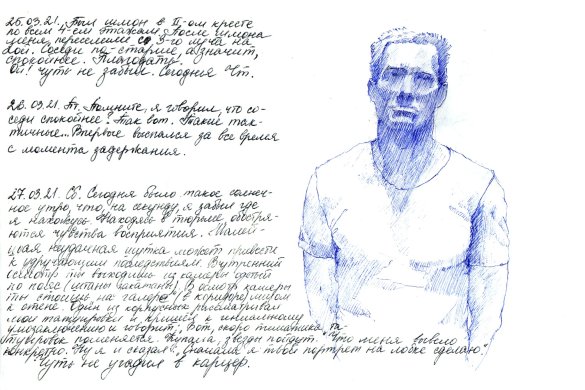 25.03.21. Был шмон в II-ом кресте
по всем 4-ем этажам. После шмона
меня переселили со 3-го луча на
2ой. Соседи по-старше, а значит,
спокойнее. Благодать.
Ой! Чуть не забыл. Сегодня Чт.
26.03.21. Пт. Помните, я говорил, что со-
седи спокойнее? Так вот. Такие так-
тичные... Впервые выспался за все время
с момента задержания.
27.03.21. Сб. Сегодня было такое солнеч-
ное утро, что, на секунду, я забыл где
я нахожусь. Находясь в тюрьме, обостря-
ются чувства восприятия. Малей-
шая неудачная шутка может привести
к удручающим последствиям. Внутренний
осмотр ты выходишь из камеры одетый
по робе (штаны закатаны). В осмотр камеры
ты стоишь на галоре (в коридоре) лицом
к стене. Один из корпусных рассматривал
мои татуировки и пришел к
умозаключению и говорит: Вот, скоро тематика та-
туировок поменяется. Купала, звезды пойдут. Что меня вывело
Ну я и сказал: "Сначала я твой портрет на лобке сделаю."
Чуть не угодил в карцер.